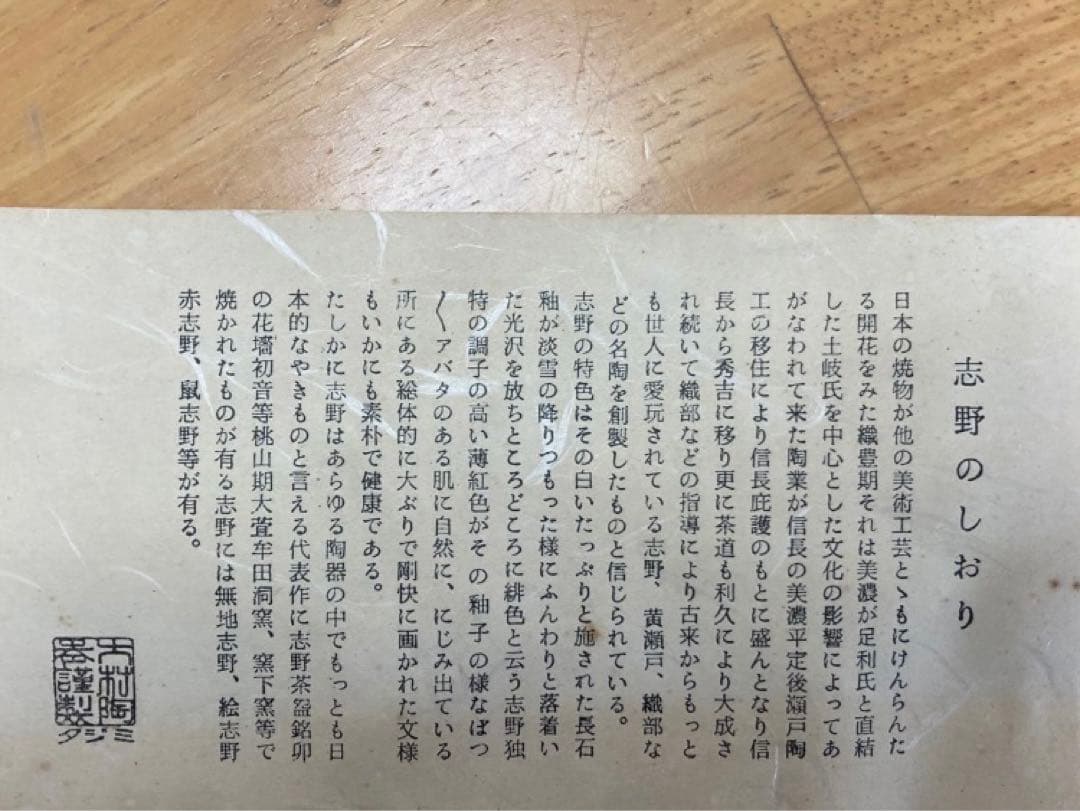 志野のしおり
日本の焼物が他の美術工芸とゝもにけんらんた
る開花をみた織豊期それは美濃が足利氏と直結
した土岐氏を中心とした文化の影響によってあ
がなわれて来た陶業が信長の美濃平定後瀬戸陶
工の移住により信長庇護のもとに盛んとなり信
長から秀吉に移り更に茶道も利久により大成さ
れ続いて織部などの指導により古来からもっと
も世人に愛玩されている志野、黄瀬戸、織部な
どの名陶を創製したものと信じられている。
志野の特色はその白いたっぷりと施された長石
釉が淡雪の降りつもった様にふんわりと落着い
た光沢を放ちところどころに緋色と云う志野独
特の調子の高い薄紅色がその釉子の様なぱつ
〱アバタのある肌に自然に、にじみ出ている
所にある総体的に大ぶりで剛快に画かれた文様
もいかにも素朴で健康である。
たしかに志野はあらゆる陶器の中でもっとも日
本的なやきものと言える代表作に志野茶盌銘卯
の花墻初音等桃山期大萱牟田洞窯、窯下窯等で
焼かれたものが有る志野には無地志野、絵志野
赤志野、鼠志野等が有る。
謹製